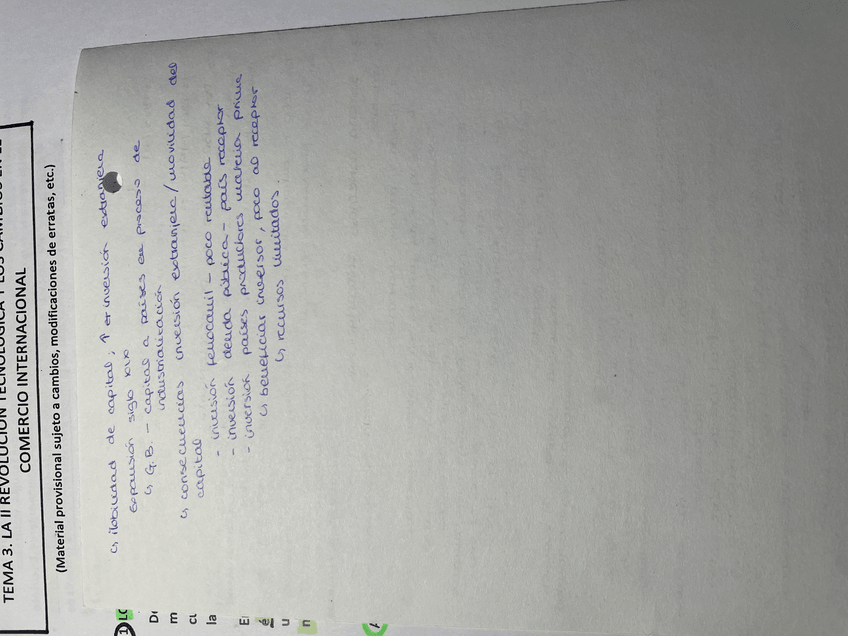 TEMA 3. LA II REVOLUCIÓN TECNOLÓGICA Y LOS CAMBIOS EN EL
COMERCIO INTERNACIONAL
(Material provisional sujeto a cambios, modificaciones de erratas, etc.)
↳ Mobilidad de capital; ↑ er inversión extranjera
Expansión siglo XIX
↳ G.B. - capital a países en proceso de
industrialización
↳ consecuencias inversión extranjera/movilidad del
capital
- inversión ferrocarril - poco rentable
- inversión deuda pública - país receptor
- inversión países productores materia prima
↳ beneficiar inversor, poco al receptor
↳ recursos limitados.
1 LO
De
m
cu
la
E
é
u
n
A